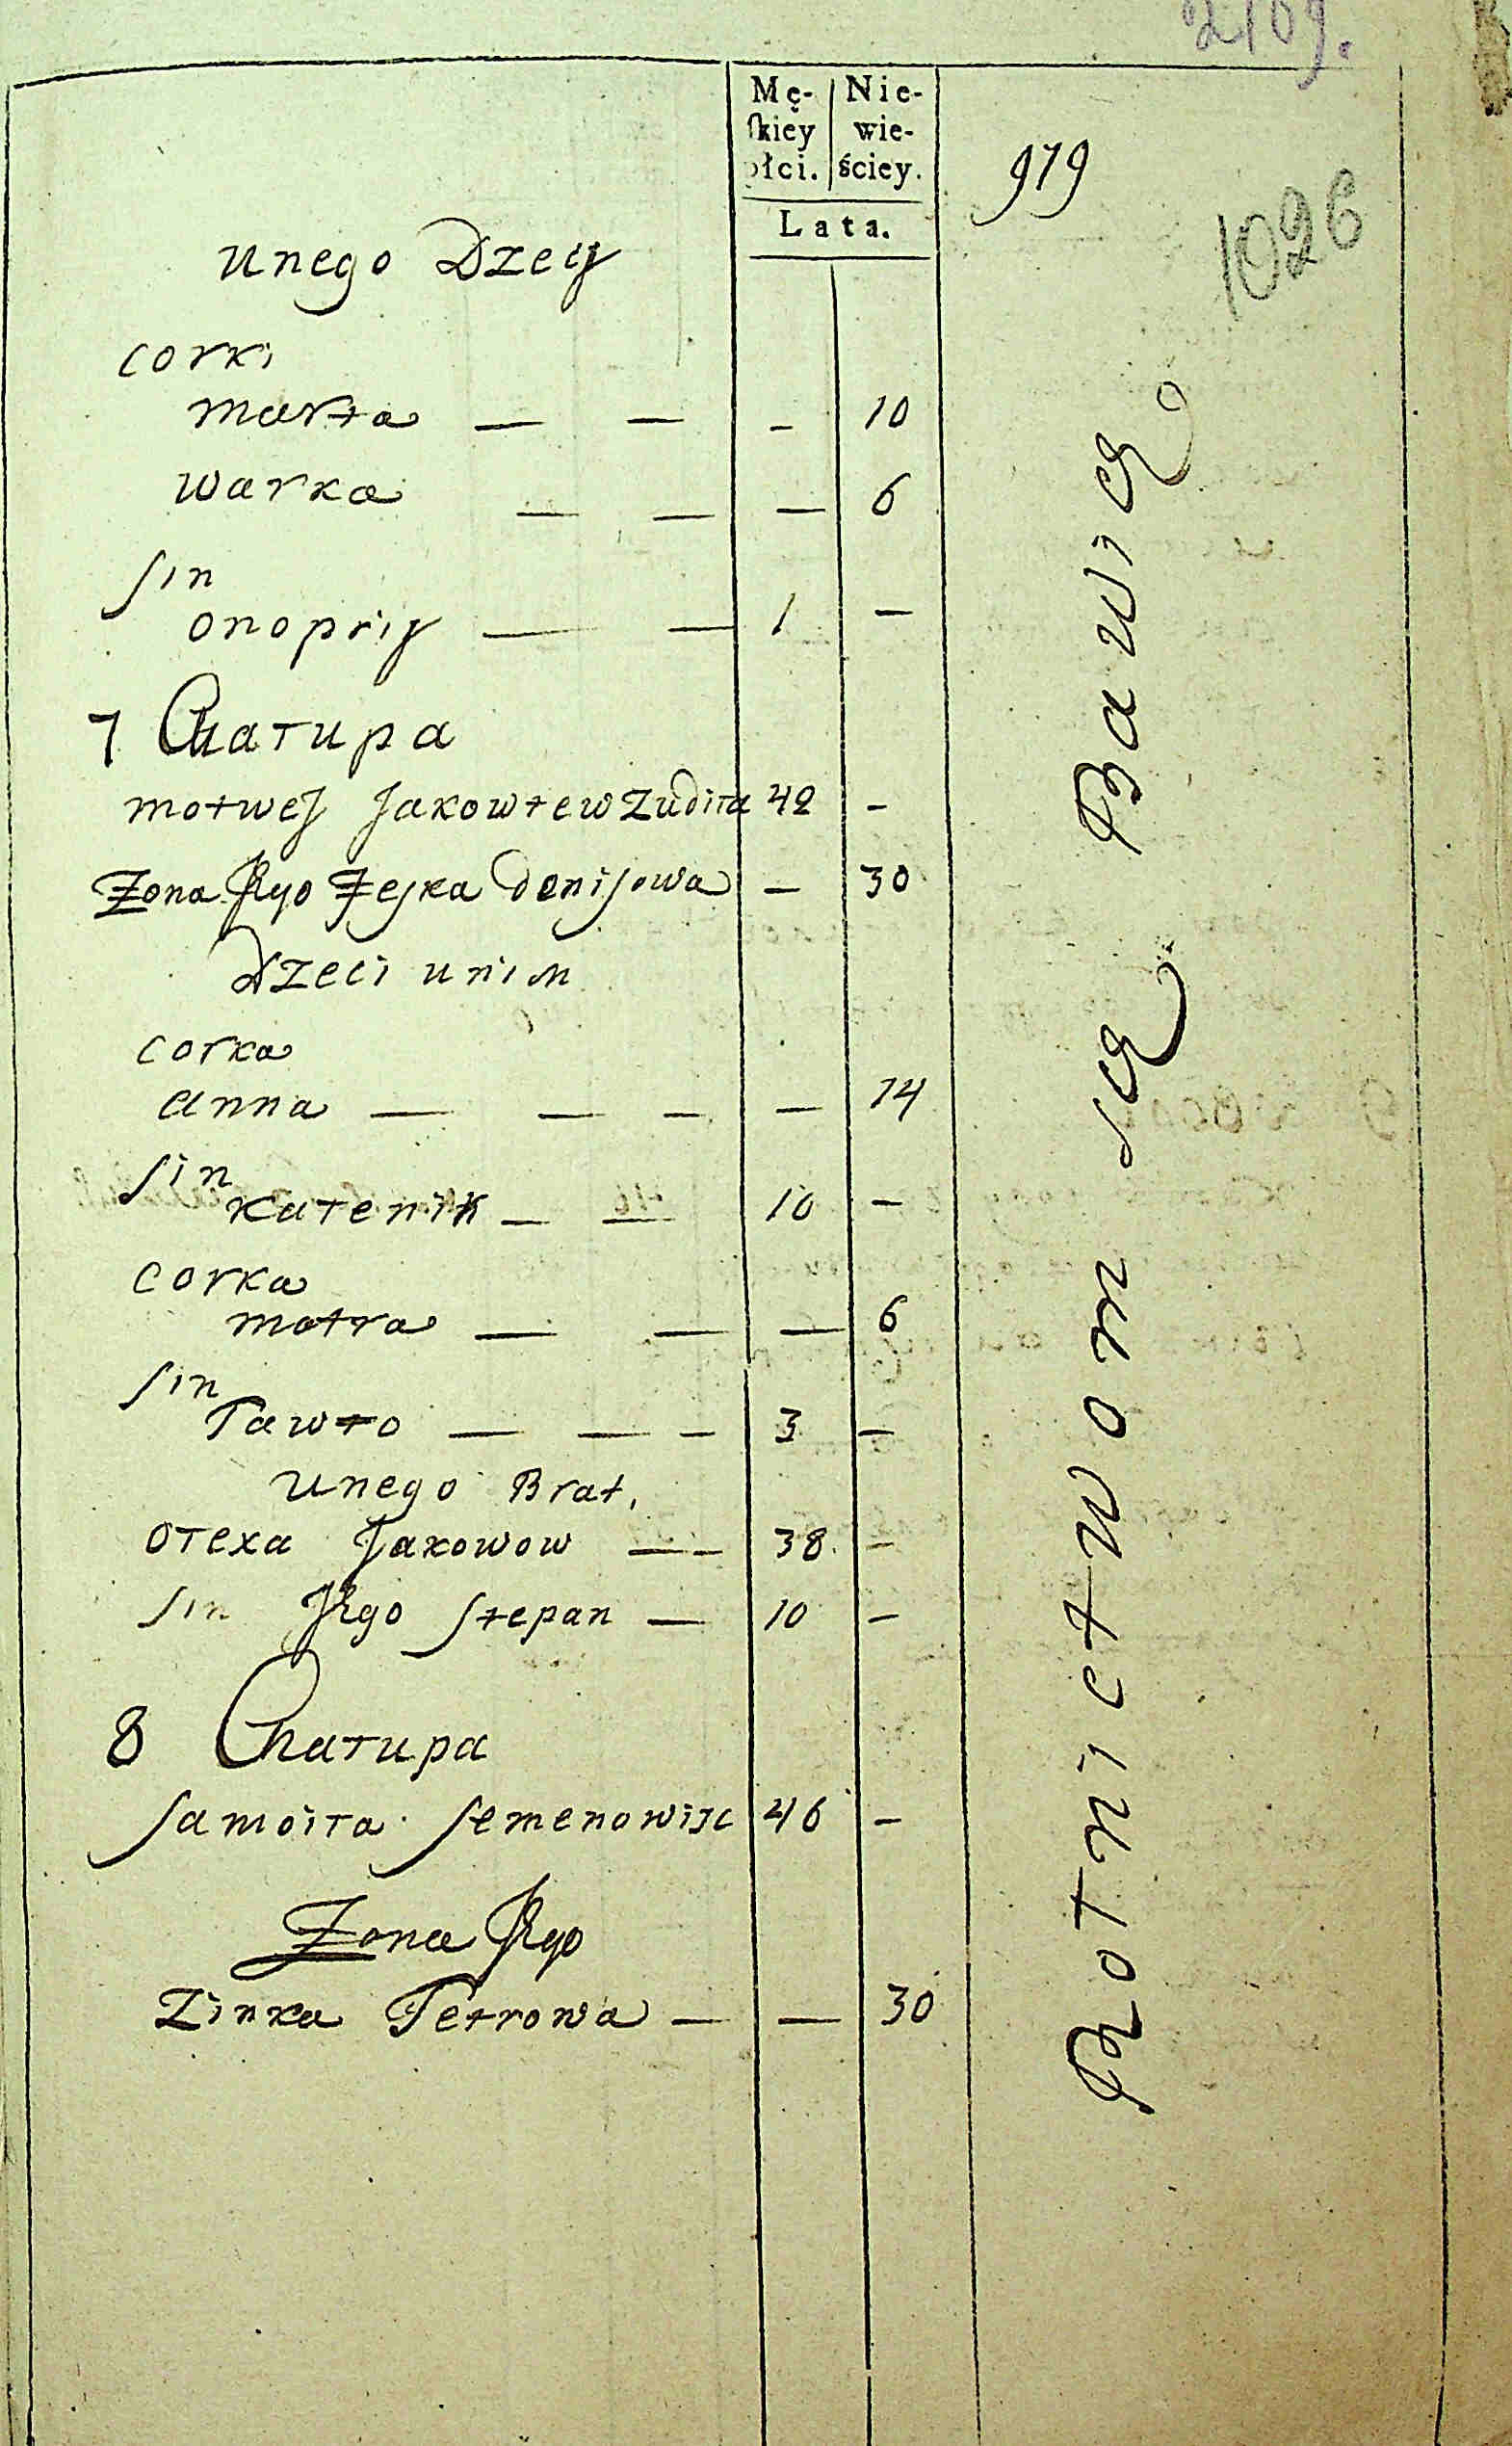 2109.
Mę- Nie-
ſkiey wie-
płci. ściey.
Lata.
979
1026
unego Dzecy
corki
marta — — - 10
warka — — — 6
sin
onopriy — — 1 —
7 Chałupa
motwej Jakowlew 42 -
Żona Jego denisowa — 30
Dzeci unim
corka
anna — — - — 14
sin
kalenik — — 10 -
corka
motra — — — 6
sin
Pawło — — - 3 —
unego Brat,
ołexa Jakowow — - 38 -
sin Jego stepan — 10 -
8 Chałupa
samoiła semenowisc 46 -
Żona Jego
Zinka Petrowa — — 30
Rolnictwom sę Bawicę